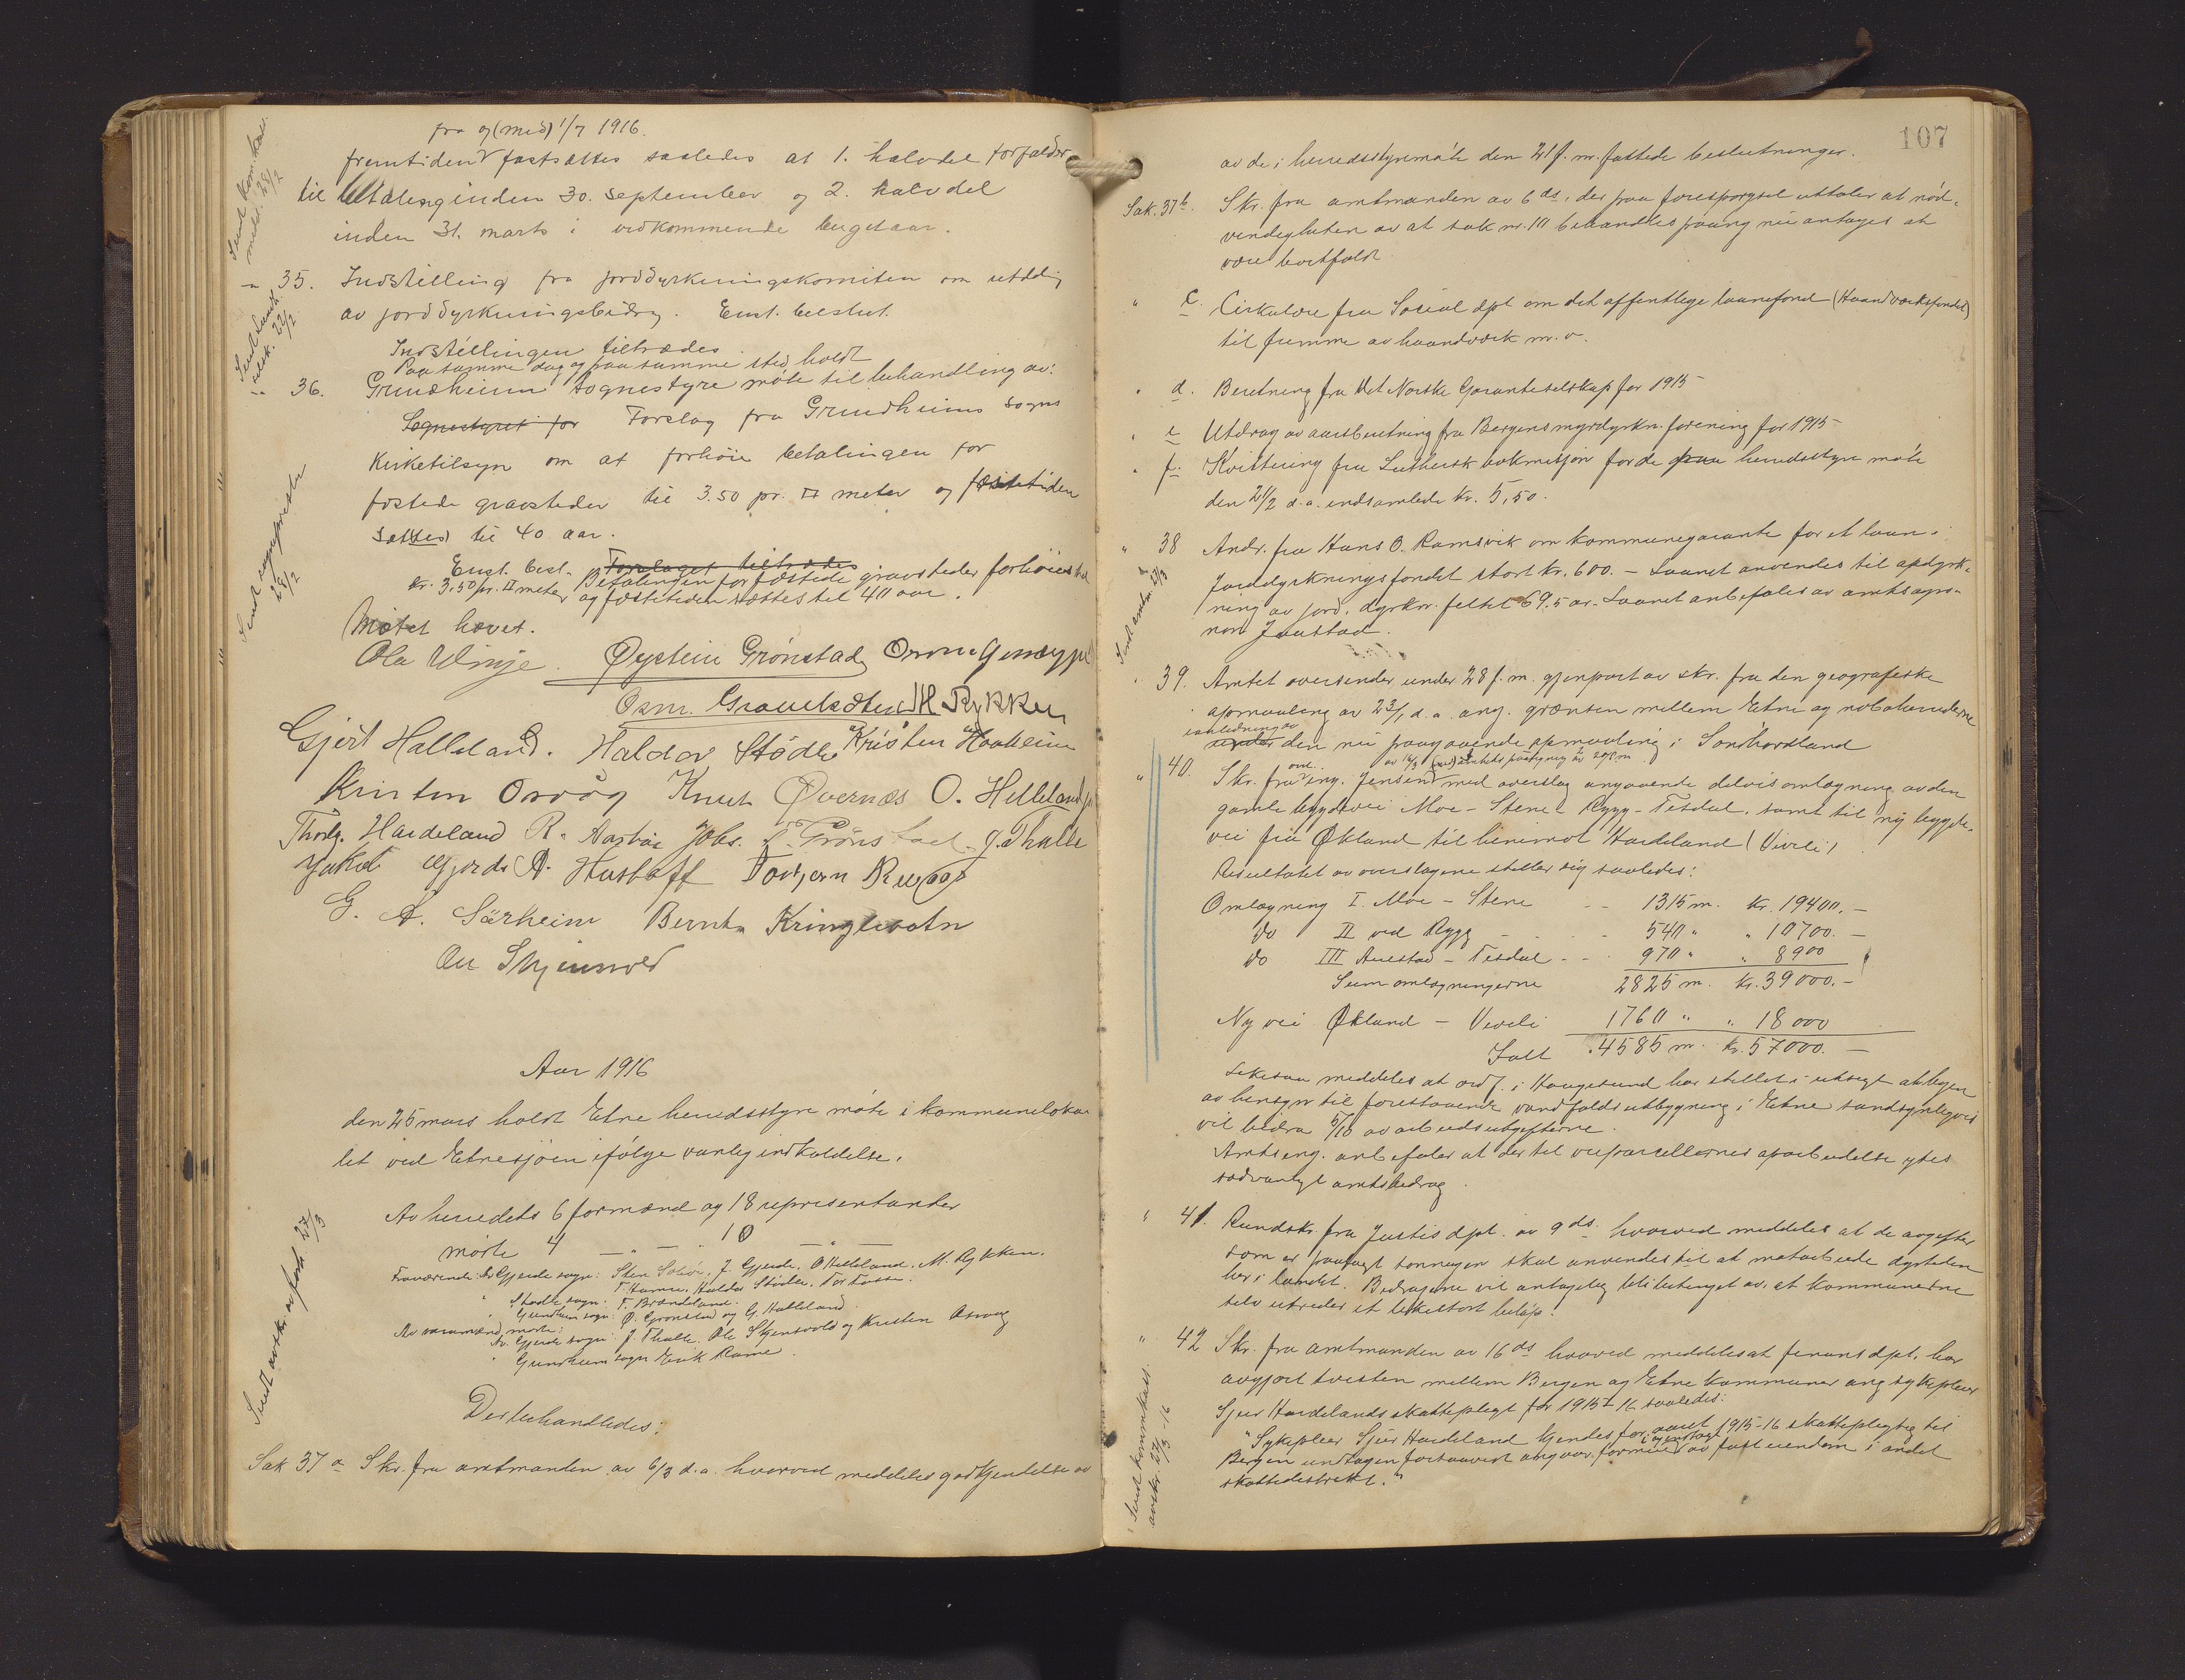 fra og (med) 1/7 1916.
fremtiden fastsættes saaledes at 1. halvdel forfalder
til betaling inden 30. september og 2. halvdel
inden 31. marts i vedkommende budgetaar.
Sendt kom. kas.
medd. 28/2
" 35. Indstilling fra jorddyrkningskomiten om utdeling
av jorddyrkningsbidrag. Enst. beslut.
Indstillingen tiltrædes
Sendt Landh.
selsk. 22/2
Paa samme dag og paa samme sted holdt
" 36. Grindheim sognestyre møte til behandling av:
Sognestyret for Forslag fra Grindheims sogns
Kirketilsyn om at forhøie betalingen for
festede gravsteder til 3.50 pr. □ meter og festetiden
sættes til 40 aar.
Sendt sogneprester
28/2
Enst. besl. Forslaget tiltrædes
Betalingen for fæstede gravsteder forhøies til
kr. 3,50 pr. □ meter og festetiden sættes til 40 aar.
Møtet hævet.
Ola Vinje. Øystein Grønstad Orm Grindheim
Osm. Grauelsæter M Rykken
Gjert Halleland. Haldor Stødle Kristen Haaheim
Kristen Osvåg Knut Øvernæs O. Helleland
Thorlg. Hardeland R. Aasbøe Johs. T. Grønstad. J. Thulle
Jakob Gjerde A. Hustoft Torbjørn Rygg
G. A. Særheim Bernt Kringlevatn
Ole Skjensvold
Aar 1916
den 25 mars holdt Etne herredsstyre møte i kommunelokа
let ved Etnesjøen ifølge vanlig indkaldelse.
Av herredets 6 formænd og 18 representanter
møtte 4 — " — 10 — " —
Fraværende: Av Gjerde sogn: Sten Solvei, J. Gjerde, O Helleland, M. Rykken.
T. Hamre, Haldor Stødle, Tor Tosse.
" Stødle sogn: T. Brændeland.
" Grindheim sogn: Ø. Grønstad og G. Halleland.
Av varamænd møtte:
Av Gjerde sogn: J. Thulle, Ole Skjensvold og Kristen Osvaag
" Grindheim sogn Eirik Rame.
Sendt avskr. av forts. 27/3
Der behandledes:
Sak 37 a Skr. fra amtmanden av 6/3 d.a. hvorved meddeles godkjendelse av
107
av de i herredsstyremøte den 21 f. m. fattede beslutninger.
Sak. 37 b. Skr. fra amtmanden av 6 ds., der paa forespørgsel uttaler at nød-
vendigheten av at sak nr. 111 behandles paany nu antages at
være bortfaldt
" c. Cirkulære fra Social dpt om det offentlige laanefond (Haandverksfondet)
til fremme av haandverk m. v.
" d. Beretning fra Det Norske Garantiselskap for 1915
" e Utdrag av aarsberetning fra Bergens myrdyrkn. forening for 1915
" f. Kvittering fra Luthersk bokmisjon for de paa herredsstyre møte
den 21/2 d.a. indsamlede kr. 5,50.
" 38 Andr. fra Hans O. Ramsvik om kommunegarante for et laan i
Jorddyrkningsfondet stort kr. 600. — Laanet anvendes til opdyrk-
ning av jord, dyrkn. feltet 69,5 ar. Laanet anbefales av amtsagro-
nom Jaastad.
Sendt andr. 27/3
" 39. Amtet oversender under 28 f. m. gjenpart av skr. fra den geografiske
opmaaling av 23/1 d.a. ang. grænsen mellem Etne og naboherrederne
i anledning av
under den nu paagaaende opmaaling i Sønhordland
" 40. Skr. fra ing. Jensen med overslag angaaende delvis omlægning av den
gamle bygdevei Moe - Stene - Rygg - Tesdal. samt til ny bygde-
vei fra Økland til henimot Hardeland (Viveli)
Resultatet av overslagene stiller sig saaledes:
Omlægning I. Moe - Stene - - 1315 m. kr. 19400. —
do II ved Rygg - - - 540 " " 10700. —
do III Austad - Tesdal - - 970 " " 8900
Sum omlægningerne 2825 m. kr. 39000. —
Ny vei Økland - Viveli 1760 " " 18000
Ialt 4585 m. kr. 57000. —
Likesaa meddeles at ordf. i Haugesund har stillet i utsigt at byen
av hensyn til forestaaende vandfaldsutbygning i Etne sandsynligvis
vil bidra 5/10 av arbeidsutgifterne.
Amtsing. anbefaler at der til veiparcellernes oparbeidelse ytes
sedvanlig amtsbidrag.
" 41. Rundskr. fra Justis dpt. av 9 ds. hvorved meddeles at de avgifter
som er paalagt tonnagen skal anvendes til at motarbeide dyrtiden
her i landet. Bidragene vil antagelig bli betinget av, at kommunerne
selv utreder et likestort beløp.
" 42 Skr. fra amtmanden av 16 ds hvorved meddeles at finansdpt. har
avgjort tvisten mellem Bergen og Etne kommuner ang sykepleier
Sjur Hardelands skatteplegt for 1915-16 saaledes:
"Sykepleier Sjur Hardeland kjendes for aaret 1915-16 skatteplegtig til
Bergen undtagen forsaavidt angaar formue i og indtægt av fast eiendom i andet
skattedistrikt."
Sendt kommkass.
avskr. 27/3-16